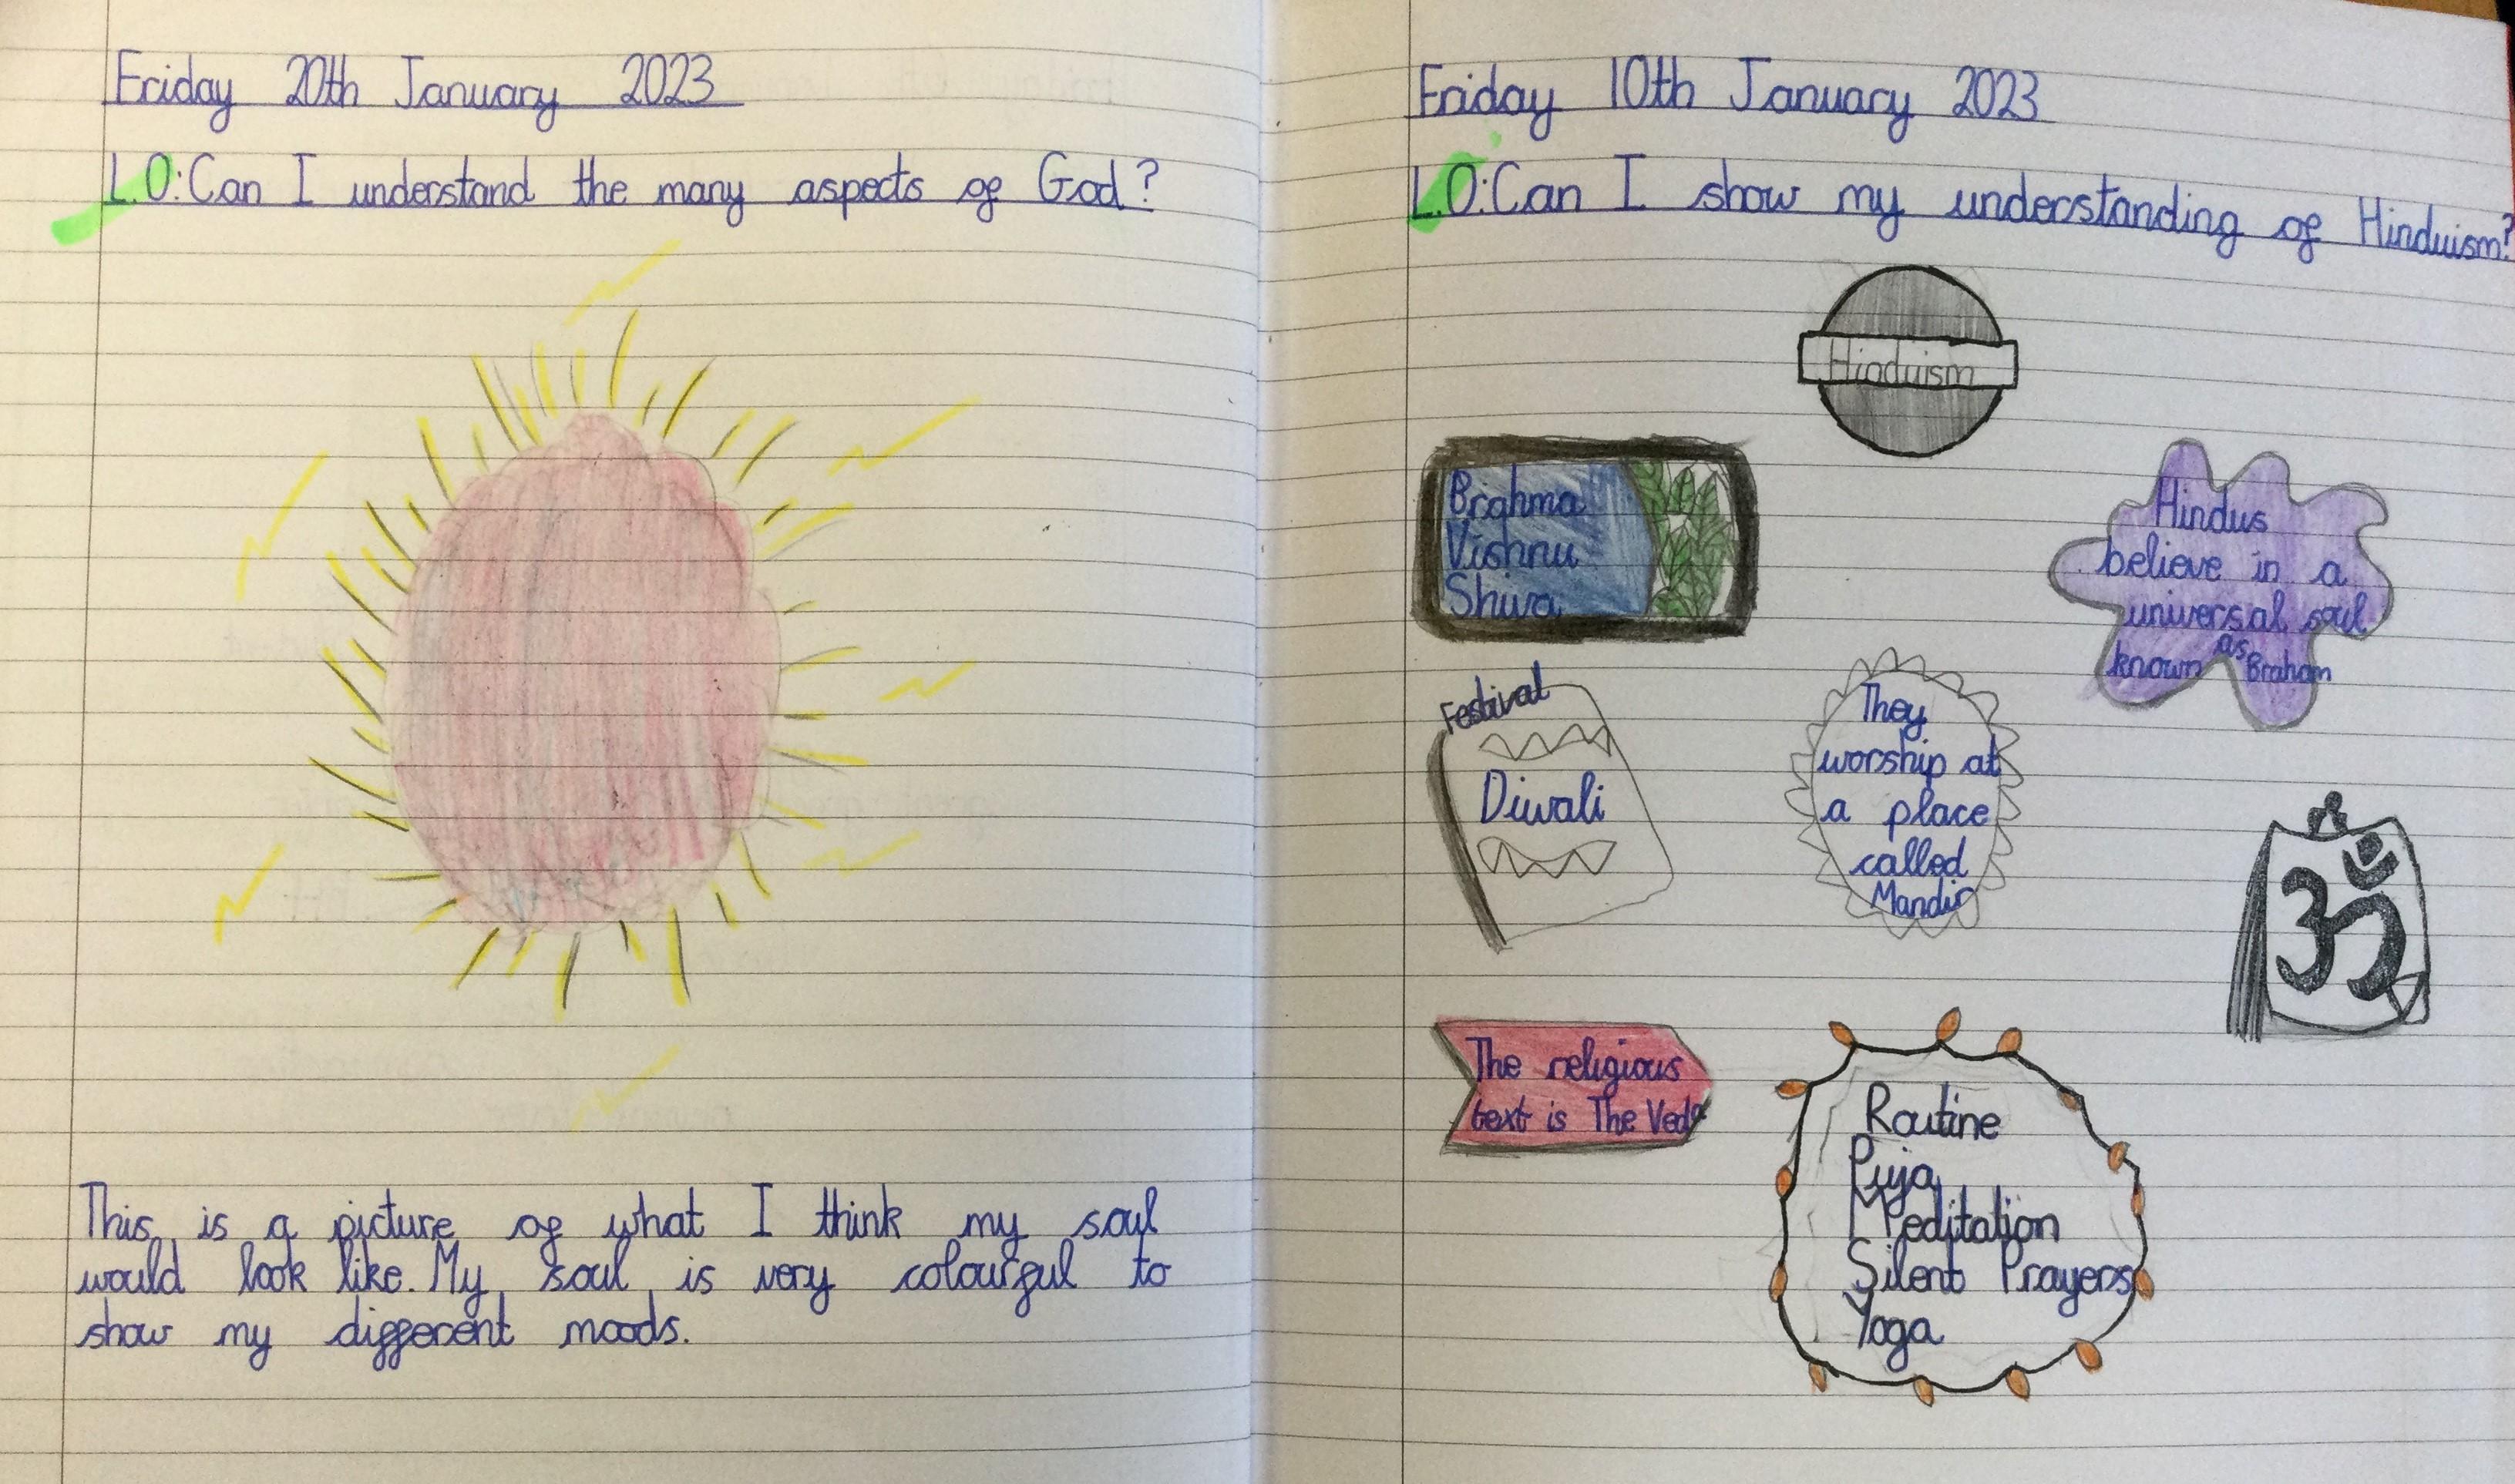 Friday 20th January 2023
L.O: Can I understand the many aspects of God?
This is a picture of what I think my soul
would look like. My soul is very colourful to
show my different moods.
Friday 10th January 2023
L.O: Can I show my understanding of Hinduism?
Hinduism
Brahma
Vishnu
Shiva
Hindus
believe in a
universal soul
known as Braham
Festival
Diwali
They
worship at
a place
called
Mandir
ॐ
The religious
text is The Veda
Routine
Puja
Meditation
Silent Prayers
Yoga